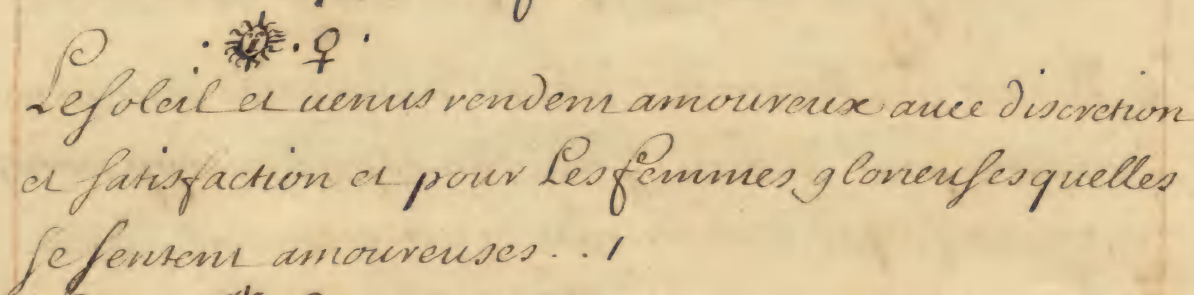 . ☉ . ♀ .
Le soleil et uenus rendent amoureux auec discretion
et satisfaction et pour Les femmes glorieuses quelles
se sentent amoureuses . . /